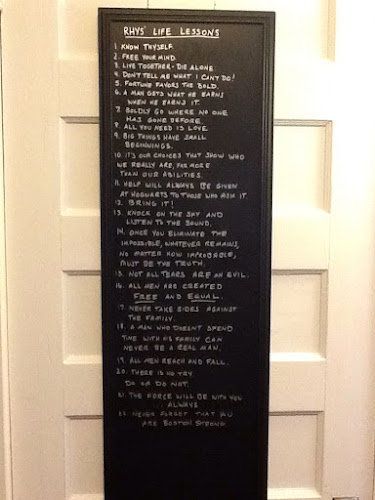 RHYS' LIFE LESSONS
1. KNOW THYSELF.
2. FREE YOUR MIND.
3. LIVE TOGETHER - DIE ALONE
4. DON'T TELL ME WHAT I CAN'T DO!
5. FORTUNE FAVORS THE BOLD.
6. A MAN GETS WHAT HE EARNS
WHEN HE EARNS IT.
7. BOLDLY GO WHERE NO ONE
HAS GONE BEFORE.
8. ALL YOU NEED IS LOVE.
9. BIG THINGS HAVE SMALL
BEGINNINGS.
10. IT'S OUR CHOICES THAT SHOW WHO
WE REALLY ARE, FAR MORE
THAN OUR ABILITIES.
11. HELP WILL ALWAYS BE GIVEN
AT HOGWARTS TO THOSE WHO ASK IT.
12. BRING IT!
13. KNOCK ON THE SKY AND
LISTEN TO THE SOUND.
14. ONCE YOU ELIMINATE THE
IMPOSSIBLE, WHATEVER REMAINS,
NO MATTER HOW IMPROBABLE,
MUST BE THE TRUTH.
15. NOT ALL TEARS ARE AN EVIL.
16. ALL MEN ARE CREATED
FREE AND EQUAL.
17. NEVER TAKE SIDES AGAINST
THE FAMILY.
18. A MAN WHO DOESN'T SPEND
TIME WITH HIS FAMILY CAN
NEVER BE A REAL MAN.
19. ALL MEN REACH AND FALL.
20. THERE IS NO TRY
DO OR DO NOT.
21. THE FORCE WILL BE WITH YOU
ALWAYS
22. NEVER FORGET THAT YOU
ARE BOSTON STRONG